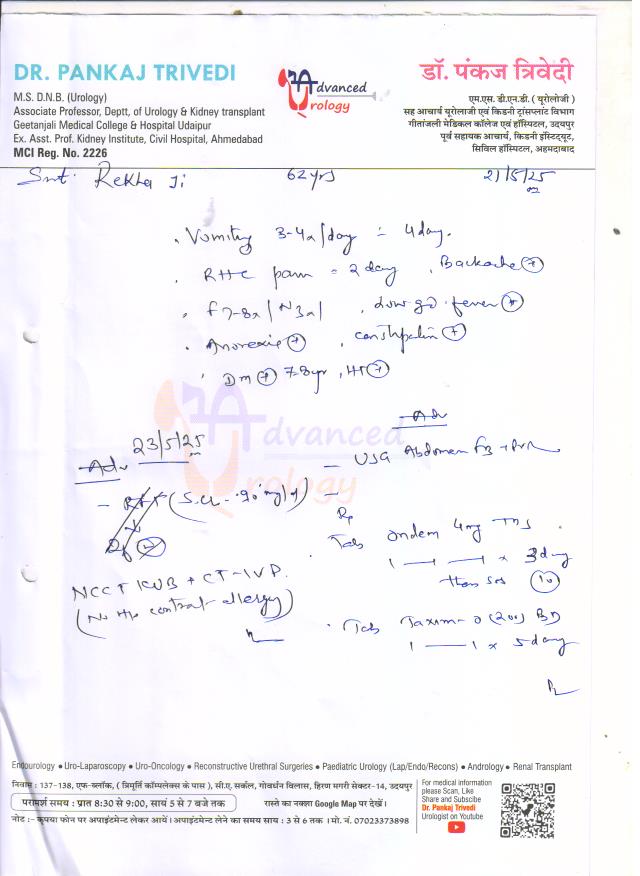 DR. PANKAJ TRIVEDI
M.S. D.N.B. (Urology)
Associate Professor, Deptt. of Urology & Kidney transplant
Geetanjali Medical College & Hospital Udaipur
Ex. Asst. Prof. Kidney Institute, Civil Hospital, Ahmedabad
MCI Reg. No. 2226
Advanced
Urology
डॉ. पंकज त्रिवेदी
एम.एस. डी.एन.बी. ( यूरोलोजी )
सह आचार्य यूरोलोजी एवं किडनी ट्रांसप्लांट विभाग
गीतांजली मेडिकल कॉलेज एवं हॉस्पिटल, उदयपुर
पूर्व सहायक आचार्य, किडनी इंस्टिट्यूट,
सिविल हॉस्पिटल, अहमदाबाद
Smt. Rekha Ji 62 yrs 21/5/25
. Vomiting 3-4x/day = 4 day.
. RHC pain = 2 day . Backache (+)
. F7-8x/N3x/ . low gd. fever (+)
. Anorexia (+) , constipation (+)
. Dm (+) 7-8yr , HT (+)
Adv
- USG Abdomen FB + PVR
Rx
. Tab Ondem 4mg TDS
1 — 1 — 1 x 3day
then sos (10)
. Tab Taxim-O (200) BD
1 — 1 x 5day
Adv 23/5/25
- RFT (S.Cr. .90 mg/dl)
NCCT KUB + CT-IVP.
(No H/o contrast allergy)
Advanced
Urology
Endourology ● Uro-Laparoscopy ● Uro-Oncology ● Reconstructive Urethral Surgeries ● Paediatric Urology (Lap/Endo/Recons) ● Andrology ● Renal Transplant
निवास : 137-138, एफ-ब्लॉक, ( त्रिमूर्ति कॉम्पलेक्स के पास ), सी.ए. सर्कल, गोवर्धन विलास, हिरण मगरी सेक्टर-14, उदयपुर
परामर्श समय : प्रात 8:30 से 9:00, सायं 5 से 7 बजे तक रास्ते का नक्शा Google Map पर देखें।
नोट :- कृपया फोन पर अपाइंटमेन्ट लेकर आयें। अपाइंटमेन्ट लेने का समय सायं : 3 से 6 तक । मो. नं. 07023373898
For medical information
please Scan, Like
Share and Subscibe
Dr. Pankaj Trivedi
Urologist on Youtube